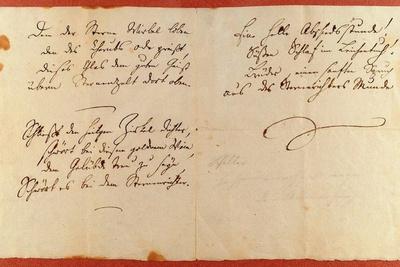 Den der Sterne Wirbel loben
den des Seraphs Hymne preist,
dieses Glas dem guten Geist
überm Sternenzelt dort oben.
Schließt den heilgen Zirkel dichter,
schwört bei diesem goldnen Wein
dem Gelübde treu zu seyn,
Schwört es bei dem Sternenrichter.
Eine heitre Abschiedsstunde!
Süßen Schlaf im Leichentuch!
Brüder einen sanften Spruch
aus des Sternenrichters Munde